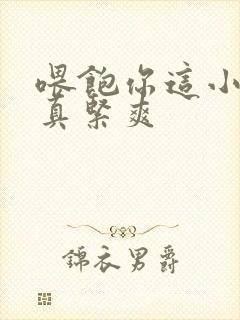 喂飽你這小
真緊爽
錦衣男爵